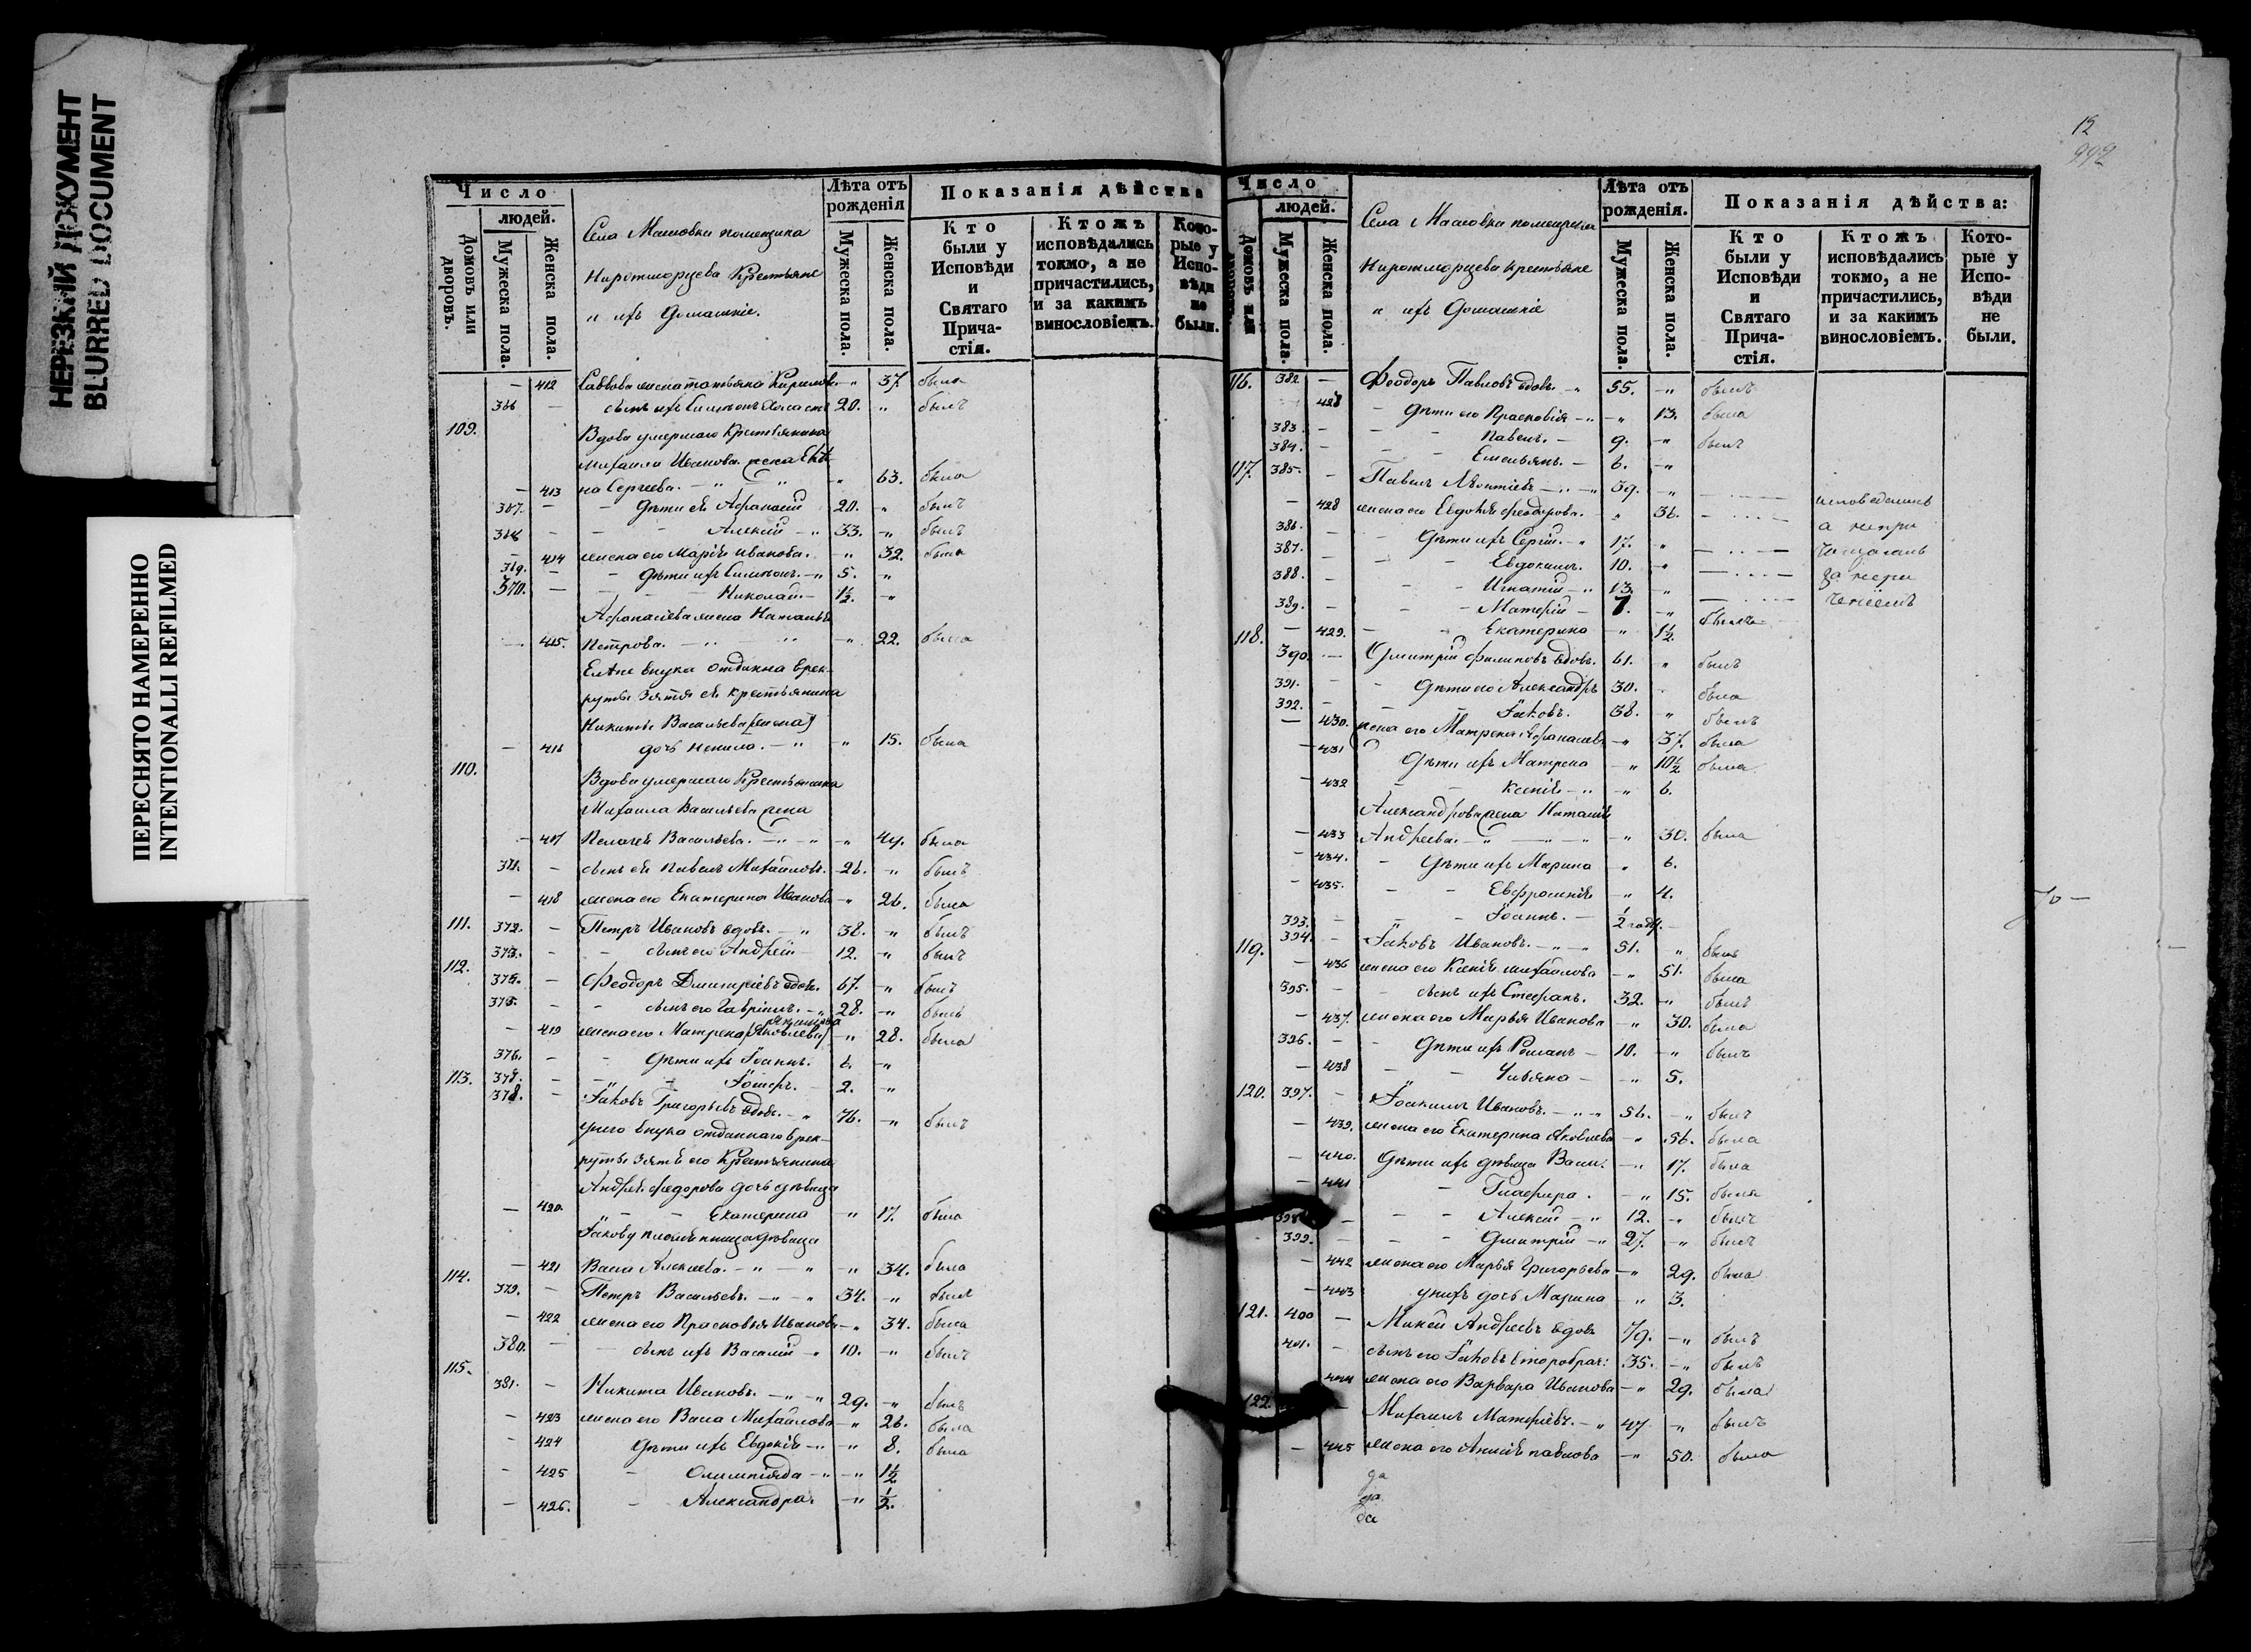 НЕРЕЗКИЙ ДОКУМЕНТ
BLURRED DOCUMENT
ПЕРЕСНЯТО НАМЕРЕННО
INTENTIONALLI REFILMED
Число
людей.
Домовъ или дворовъ.
Мужеска пола.
Женска пола.
Села Машовки помещика
крестьяне
и ихъ домашніе.
Лѣта отъ рожденія
Мужеска пола.
Женска пола.
Показанія дѣйства
Кто были у Исповѣди и Святаго Причастія.
Ктожъ исповѣдались токмо, а не причастились, и за какимъ винословіемъ.
Которые у Исповѣди не были.
— 412 жена Татьяна —„ 37. была
366 — сынъ ихъ 20. „ былъ
109. Вдова умершаго крестьянина
Михаила Иванова жена
— 413 Сергеева. —„ 63. была
367. — дѣти ея Афанасій 20. „ былъ
368 — Алексій —„ 33. —„ былъ
— 414 жена его Марія Иванова. —„ 32. была
369. — дѣти ихъ Симеонъ. —„ 5. „
370. — Николай. — 1½. —„
Афанасіева жена Наталья
— 415. Петрова. —„ 22. была
внука отданна в рек-
руты зятя ея крестьянина
Никиты Васильева
— 416 дочь Ненила. —„ —„ 15. была
110. Вдова умершаго крестьянина
Михаила Васильева жена
— 417 Пелагея Васильева. —„ —„ 49. была
371. — сынъ ея Павелъ Михайловъ. 26. „ былъ
— 418 жена его Екатерина Иванова —„ 26. была
111. 372. — Петръ Ивановъ вдовъ. —„ 38. „ былъ
373. — сынъ его Андрей 12. „ былъ
112. 374. — Феодоръ Димитріевъ вдовъ. 67. —„ былъ
375. — сынъ его Гавріилъ. —„ 28. —„ былъ
— 419 жена его Матрена —„ 28. была
376. — дѣти ихъ Іоаннъ. 6. —„
377. — Іосифъ. — 2. —„
113. 378. — Іаковъ Григорьевъ вдовъ. —„ 76. —„ былъ
у него внука отданнаго в рек-
руты зятя его крестьянина
Андрея Федорова дочь дѣвица
— 420. Екатерина —„ 17. была
Іакову племянница дѣвица
— 421 Васса Алексеева. —„ —„ 34. была
114. 379. — Петръ Васильевъ. —„ 34. —„ былъ
— 422 жена его Прасковья Иванова —„ 34. была
380. — сынъ ихъ Василій —„ 10. —„ былъ
115. 381. — Никита Ивановъ. —„ 29. —„ былъ
— 423 жена его Васса Михайлова —„ 26. была
— 424 дѣти ихъ Евдокія —„ —„ 8. была
— 425 Олимпіяда —„ —„ 1½
— 426. Александра. —„ ½.
12
992
Число
людей.
Домовъ или дворовъ.
Мужеска пола.
Женска пола.
Села Машовки помещика
крестьяне
и ихъ домашніе
Лѣта отъ рожденія.
Мужеска пола.
Женска пола.
Показанія дѣйства:
Кто были у Исповѣди и Святаго Причастія.
Ктожъ исповѣдались токмо, а не причастились, и за какимъ винословіемъ.
Которые у Исповѣди не были.
116. 382 — Феодоръ Павловъ вдовъ. —„ 55. —„ былъ
428 — дѣти его Прасковія —„ —„ 13. была
383. — Павелъ. — 9. —„ былъ
384. — Емельянъ. — 6. —„
117. 385. — Павелъ Леонтіевъ —„ 39. —„ исповедались
— 428 жена его Евдокія Феодорова. „ 36. а не при
386. — дѣти ихъ Сергій. —„ 17. „ чащались
387. — Евдокимъ. 10. —„ за нера
388. — Игнатій —„ 13. „ ченіемъ
389. — Матфей — 7. —„ былъ
— 429. Екатерина —„ 1½.
118. 390. — Дмитрій Филиповъ вдовъ. 61. „ былъ
391. — дѣти его Александръ 30. была
392. — Іаковъ. 38. „ былъ
— 430. жена его Матрена —„ 37. была
— 431 дѣти ихъ Матрена —„ 10½ была
— 432 Ксенія —„ —„ 6.
Александрова жена Наталія
— 433 Андреева. —„ „ 30. была
— 434. — дѣти ихъ Марина „ 6.
— 435. Евфросинія —„ 4.
393. — Іоаннъ. — ½ года.
119. 394. — Іаковъ Ивановъ. —„ 51. „ былъ
— 436 жена его Ксенія Михайлова —„ 51. была
395. — сынъ ихъ Стефанъ. 32. —„ былъ
— 437. жена его Марья Иванова —„ 30. была
396. — дѣти ихъ Романъ — 10. —„ былъ
— 438 Ульяна — —„ 5.
120. 397. — Іоакимъ Ивановъ. —„ 56. —„ былъ
— 439. жена его Екатерина Яковлева —„ 56. была
— 440. дѣти ихъ дѣвица Васи: —„ 17. была
— 441 Глафира. —„ 15. была
398 — Алексій —„ 12. —„ былъ
399. — Дмитрій —„ 27. —„ былъ
— 442 жена его Марья Григорьева —„ 29. была
— 443 у нихъ дочь Марина —„ 3.
121. 400 — Андреевъ вдовъ 79. —„ былъ
401. — сынъ его Іаковъ второбрач: 35. —„ былъ
444 жена его Варвара Иванова —„ 29. была
122. — Михаилъ Матфеевъ. —„ 47 —„ былъ
— 445 жена его Анисія Павлова —„ 50. была
да
да
да